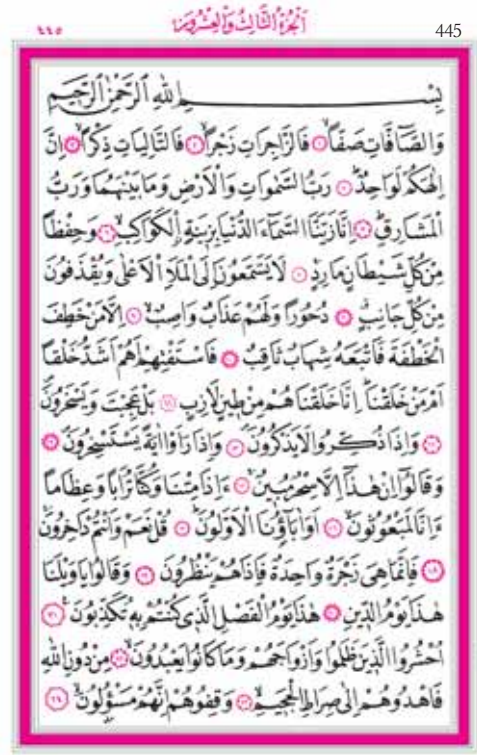 ٤٤٥ اَلْجُزْءُ الثَّالِثُ وَالْعِشْرُونَ 445
بِسْمِ اللّٰهِ الرَّحْمٰنِ الرَّحٖيمِ
وَالصَّٓافَّاتِ صَفًّاۙ ﴿١﴾ فَالزَّاجِرَاتِ زَجْرًاۙ ﴿٢﴾ فَالتَّالِيَاتِ ذِكْرًاۙ ﴿٣﴾ اِنَّ
اِلٰهَكُمْ لَوَاحِدٌۜ ﴿٤﴾ رَبُّ السَّمٰوَاتِ وَالْاَرْضِ وَمَا بَيْنَهُمَا وَرَبُّ
الْمَشَارِقِۜ ﴿٥﴾ اِنَّا زَيَّنَّا السَّمَٓاءَ الدُّنْيَا بِزٖينَةٍۨ الْكَوَاكِبِۙ ﴿٦﴾ وَحِفْظًا
مِنْ كُلِّ شَيْطَانٍ مَارِدٍۚ ﴿٧﴾ لَا يَسَّمَّعُونَ اِلَى الْمَلَأِ الْاَعْلٰى وَيُقْذَفُونَ
مِنْ كُلِّ جَانِبٍۗ ﴿٨﴾ دُحُورًا وَلَهُمْ عَذَابٌ وَاصِبٌۙ ﴿٩﴾ اِلَّا مَنْ خَطِفَ
الْخَطْفَةَ فَاَتْبَعَهُ شِهَابٌ ثَاقِبٌ ﴿١٠﴾ فَاسْتَفْتِهِمْ اَهُمْ اَشَدُّ خَلْقًا
اَمْ مَنْ خَلَقْنَاۜ اِنَّا خَلَقْنَاهُمْ مِنْ طٖينٍ لَازِبٍ ﴿١١﴾ بَلْ عَجِبْتَ وَيَسْخَرُونَۖ
﴿١٢﴾ وَاِذَا ذُكِّرُوا لَا يَذْكُرُونَۖ ﴿١٣﴾ وَاِذَا رَاَوْا اٰيَةً يَسْتَسْخِرُونَۖ ﴿١٤﴾
وَقَالُٓوا اِنْ هٰذَٓا اِلَّا سِحْرٌ مُبٖينٌۚ ﴿١٥﴾ ءَاِذَا مِتْنَا وَكُنَّا تُرَابًا وَعِظَامًا
ءَاِنَّا لَمَبْعُوثُونَۙ ﴿١٦﴾ اَوَاٰبَٓاؤُ۬نَا الْاَوَّلُونَۜ ﴿١٧﴾ قُلْ نَعَمْ وَاَنْتُمْ دَاخِرُونَۚ
﴿١٨﴾ فَاِنَّمَا هِيَ زَجْرَةٌ وَاحِدَةٌ فَاِذَا هُمْ يَنْظُرُونَ ﴿١٩﴾ وَقَالُوا يَا وَيْلَنَا
هٰذَا يَوْمُ الدّٖينِ ﴿٢٠﴾ هٰذَا يَوْمُ الْفَصْلِ الَّذٖي كُنْتُمْ بِهٖ تُكَذِّبُونَ۟ ﴿٢١﴾
اُحْشُرُوا الَّذٖينَ ظَلَمُوا وَاَزْوَاجَهُمْ وَمَا كَانُوا يَعْبُدُونَۙ ﴿٢٢﴾ مِنْ دُونِ اللّٰهِ
فَاهْدُوهُمْ اِلٰى صِرَاطِ الْجَحٖيمِ ﴿٢٣﴾ وَقِفُوهُمْ اِنَّهُمْ مَسْؤُ۫لُونَۙ ﴿٢٤﴾